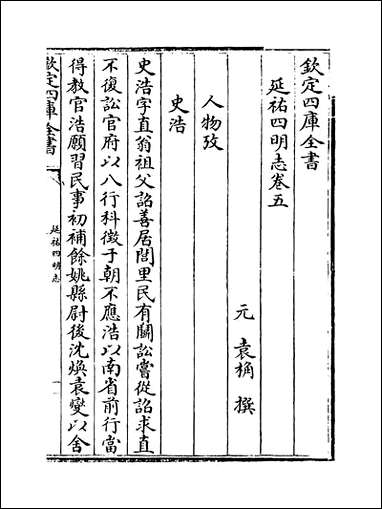 欽定四庫全書
延祐四明志卷五
元 袁桷 撰
人物攷
史浩
史浩字直翁祖父詔善居閭里民有鬬訟嘗從詔求直
不復訟官府以八行科徵于朝不應浩以南省前行當
得教官浩願習民事初補餘姚縣尉後沈煥袁燮以舍
欽定四庫全書
延祐四明志
一